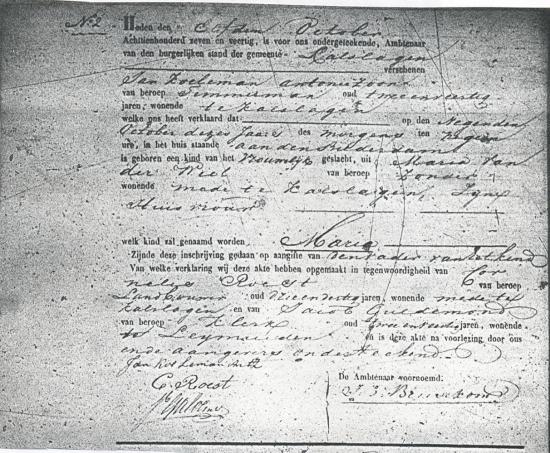 No. 2 Heden den October
Achttienhonderd zeven en veertig, is voor ons ondergeteekende, Ambtenaar
van den burgerlijken stand der gemeente Kalslagen
verschenen
Jan Antonie Zoon
van beroep Timmerman oud twee en veertig
jaren, wonende te Kalslagen
welke ons heeft verklaard dat op den Negenden
October dezes Jaars des morgens ten
ure, in het huis staande aan den Bilderdam
is geboren een kind van het Vrouwelijk geslacht, uit Maria van
der Wiel van beroep zonder
wonende mede te Kalslagen, Zijne
Huisvrouw
welk kind zal genaamd worden Maria
Zijnde deze inschrijving gedaan op aangifte van den vader van het kind
Van welke verklaring wij deze akte hebben opgemaakt in tegenwoordigheid van Cor
nelis Roest van beroep
Landbouwer oud jaren, wonende mede te
Kalslagen en van Jacob Guldemond
van beroep Klerk oud jaren, wonende
te Leymuiden en is deze akte na voorlezing door ons
ende aangevers onderteekend
C. Roest
De Ambtenaar voornoemd: